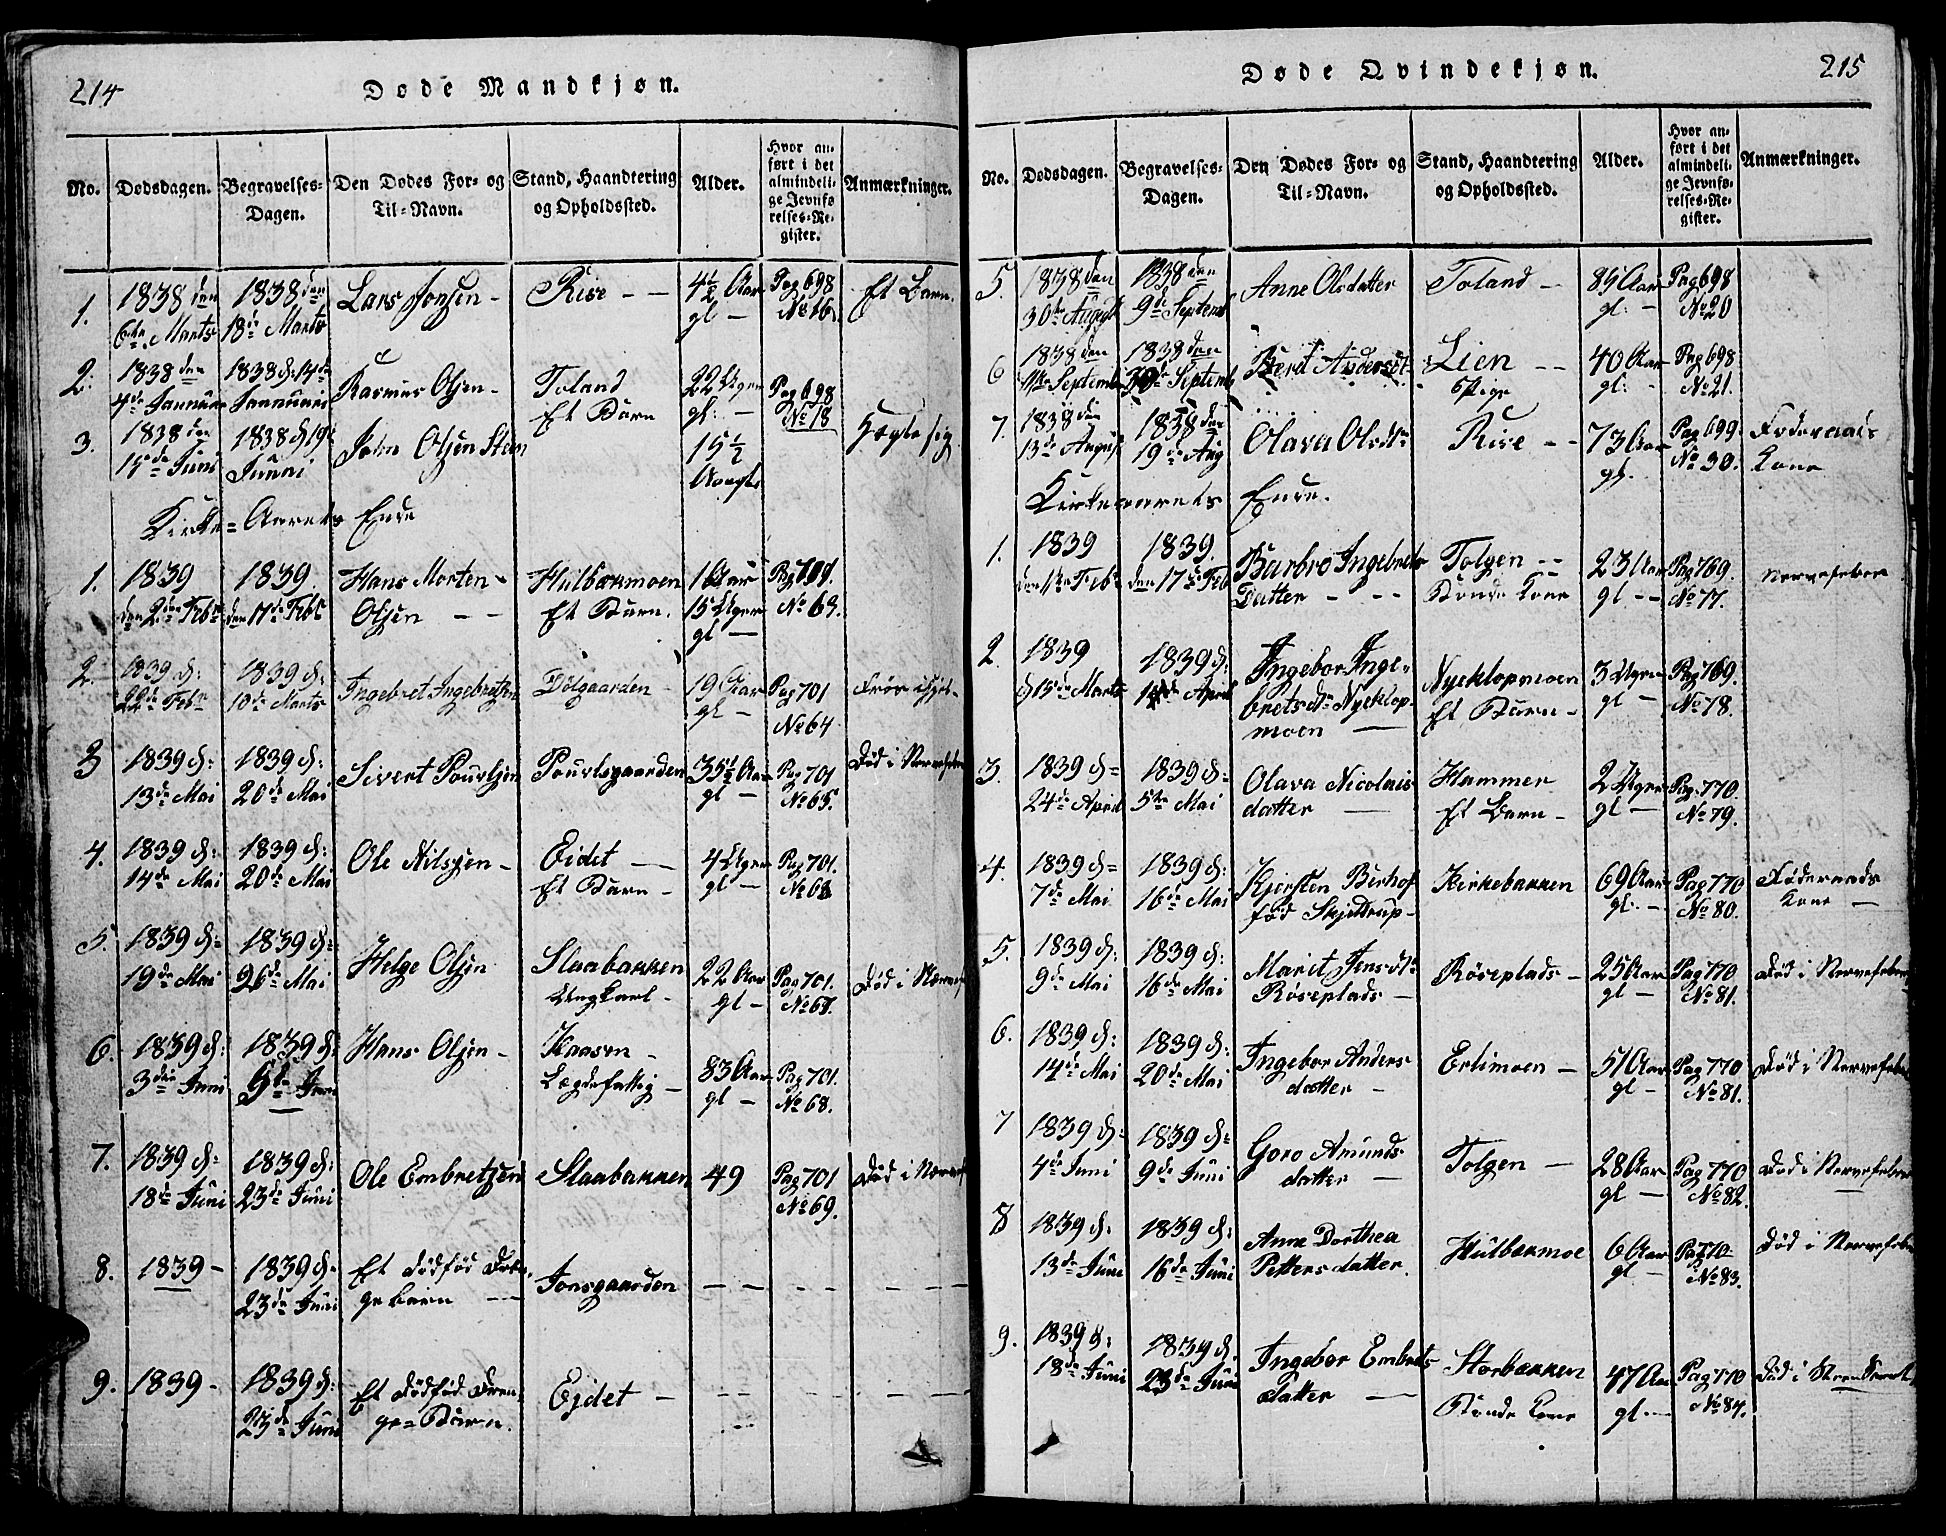 214
Døde Mandkjøn.
No. Dødsdagen. Begravelses-Dagen. Den Dødes For- og Til-Navn. Stand, Haandtering og Opholdssted. Alder. Hvor anført i det almindelige Jevnførelses-Register. Anmærkninger.
1. 1838 den 1838 den Lars Jonsen - Rise - - 4½ Aar Pag 698 Et Barn.
6te Marts 18de Marts gl - No 16.
2. 1838 den 1838 d: 14de Rasmus Olsen - Toland 22 Uger Pag 698
4de Januar Januuar Et Barn gl: - No 18
3. 1838 den 1838 d 19de John Olsen Steen 15½
15de Juni Juuni
Kirke=Aarets Ende
1. 1839 1839. Hans Morten - Hulbækmoen 1 Aar Pag 701.
den 2den Febr den 17de Febr Olsen - - Et Barn. 15 Uger No 63.
gl -
2. 1839 d: 1839 d: Ingebret Ingebretsen Dølgaarden - 19 Aar Pag 701
22de Febr 10de Marts gl - No 64
3 1839 d: 1839 d: Sivert Pourlsen Pourlsgaarden 35½ Aar Pag 701 Død i Nervefeber
13de Mai 20de Mai gl - No 65.
4. 1839 d: 1839 d: Ole Nilsen - Eidet - 4 Uger Pag 701.
14de Mai 20de Mai Et Barn - gl - No 68
5. 1839 d= 1839 d= Helge Olsen Slaabakken 22 Aar Pag 701. Død i Nervef
19de Mai 26de Mai Ungkarl - gl - No 67.
6. 1839 d: 1839 d: Hans Olsen - Kaasen - 83 Aar Pag 701.
3den Juni 9de Juni Lægdefattig - gl - No 68.
7. 1839 d: 1839 d: Ole Embretsen Slaabakken 49 Pag 701 Død i Nervef
18de Juni 23de Juni No 69.
8. 1839 - 1839 d: Et dødfød Dren- Jonsgaarden - - - - - -
23de Juni gebarn - -
9. 1839 - 1839 d: Et dødfød Dren- Ejdet - - - - - - -
23de Juni ge=Barn.
215
Døde Qvindekjøn.
No. Dødsdagen. Begravelses-Dagen. Den Dødes For- og Til-Navn. Stand, Haandtering og Opholdssted. Alder. Hvor anført i det almindelige Jevnførelses-Register. Anmærkninger.
5. 1838 den 1838 den Anne Olsdatter Toland - 85 Aar Pag 698
30te August 9de Septemb gl: - No 20
6 1838 den 1838 den Berit Andersdt Lien - - 40 Aar Pag 698
11te Septemb 30te Septemb Pige gl: - No 21.
7. 1838 den 1838 den Olava Olsdtr Rise - - 73 Aar Pag 699 Føderaads
13de August 19de Aug gl. No 30. Kone
Kirkeaarets Ende.
1. 1839 1839. Barbro Ingebrets Tolgen - - 23 Aar Pag 769. Nervefeber
den 1ste Febr den 17de Feb Datter - - - Bonde Kone gl - - No 77.
2. 1839 1839 d: Ingebor Inge- Nyeklopmoen 3 Uger Pag 769.
d 15de Marts April bretsdtr Nyeklop- Et Barn - gl - No 78.
moen -
3. 1839 d= 1839 d: Olava Nicolais Hammer 2 Uger Pag. 770.
24de April 5te Mai datter - Et Barn - gl - No 79.
4. 1839 d= 1839 d: Kjersten Berhof Kirkebakken 69 Aar Pag 770 Føderaads
7de Mai 16de Mai fød Skjettrup - gl. - No 80. Kone -
5. 1839 d: 1839 d: Marit Jensdtr Røseplads - 25 Aar Pag 770 Død i Nervefeber
9de Mai 16de Mai Røseplads - gl - No 81.
6. 1839 d: 1839 d: Ingebor Anders Erlimoen - 51 Aar Pag 770 Død i Nervefeber
14de Mai 20de Mai datter - gl - No 81.
7 1839 d= 1839 d= Goro Amunds Tolgen - 28 Aar Pag 770 Død i Nervefeber
4de Juni 9de Juni datter - gl - No 82.
8 1839 d: 1839 d: Anne Dorthea Hulbækmoe 6 Aar Pag 770 Død i Nervefeber
13de Juni 16de Juni Petters datter. gl - No 83.
9. 1839 d: 1839 d. Ingebor Embrets Storbekken 47 Aar Pag 770
18de Juni 23de Juni Datter - Bonde Kone gl - No 84.